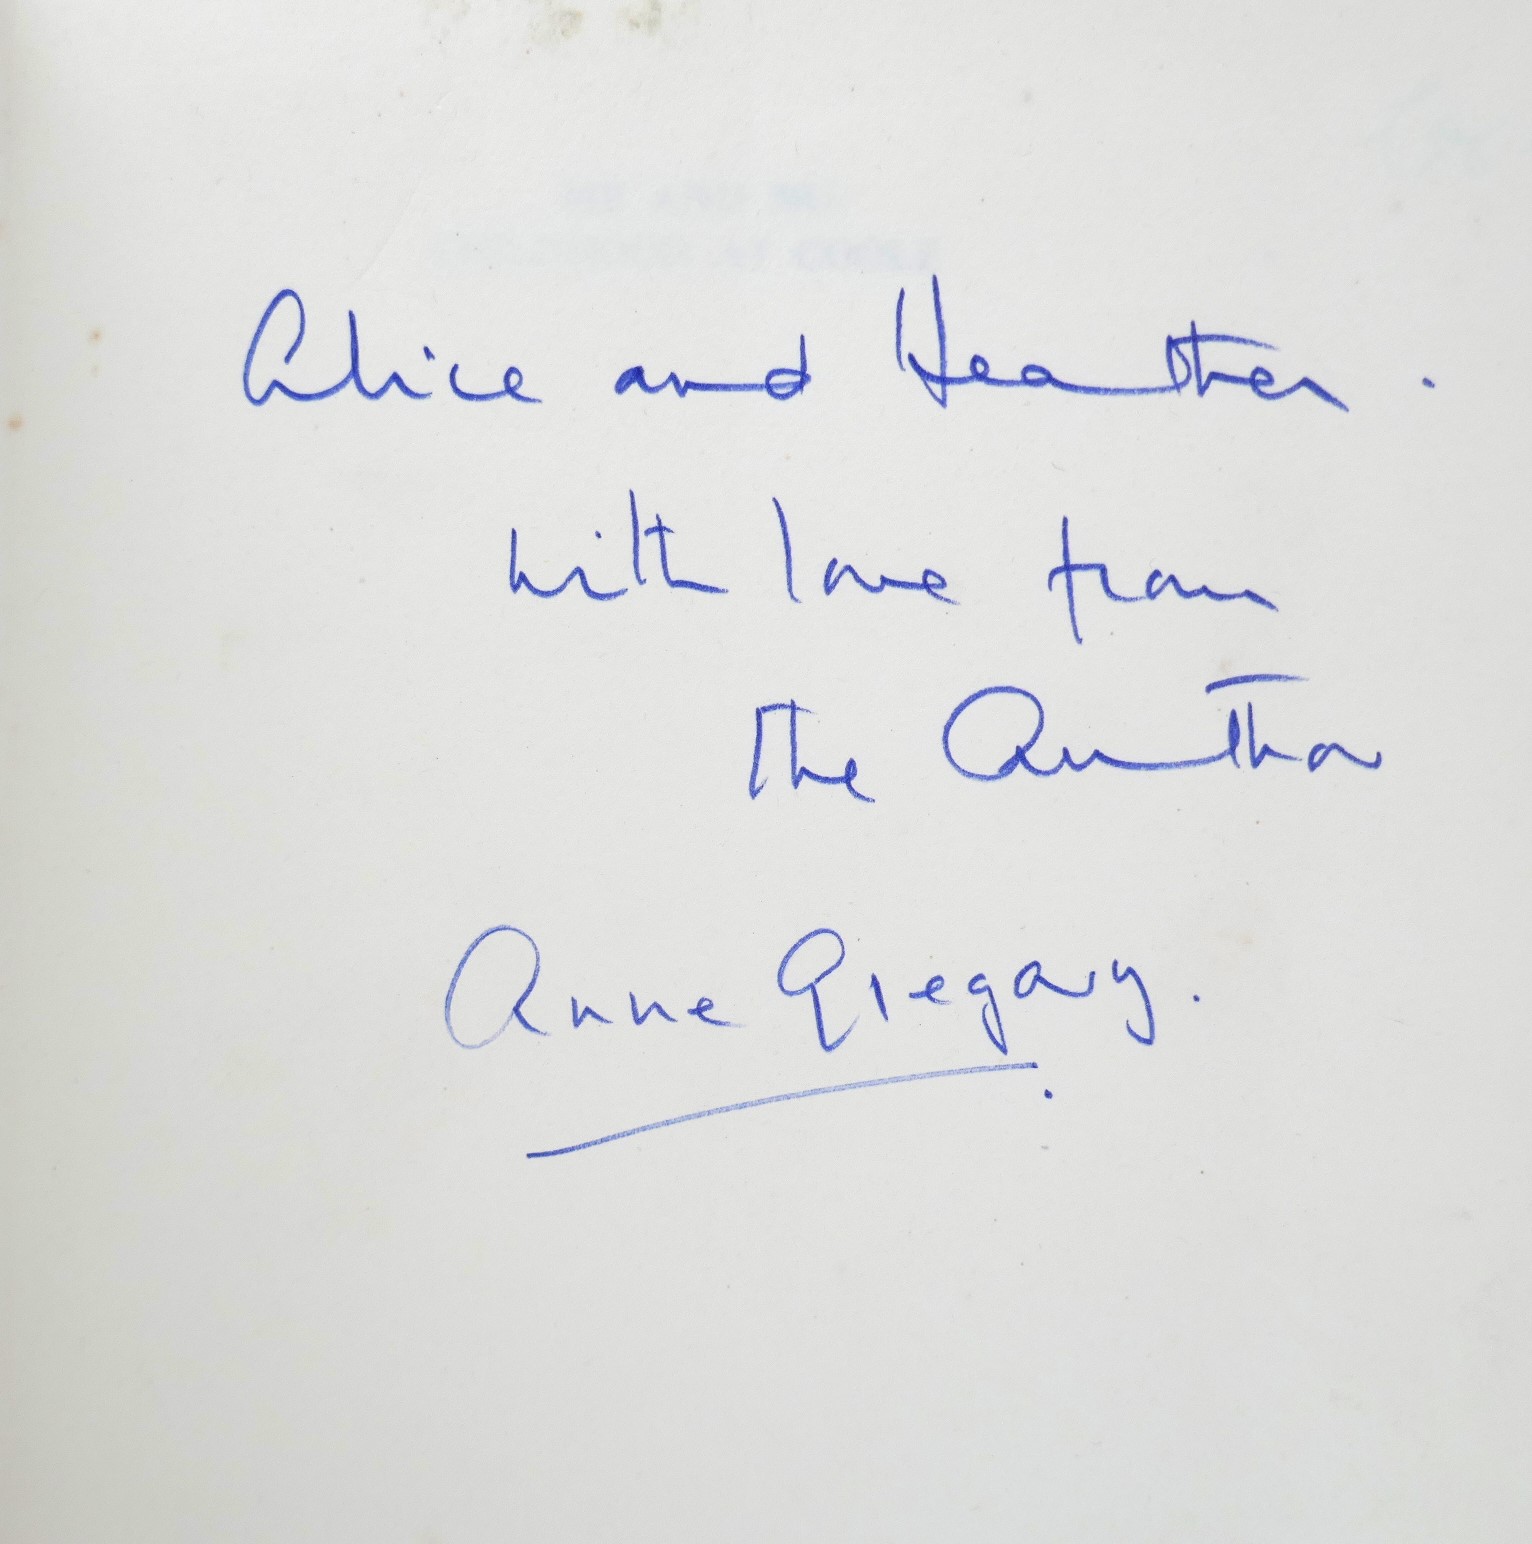 Alice and Heather.
with love from
the Author
Anne Gregory.